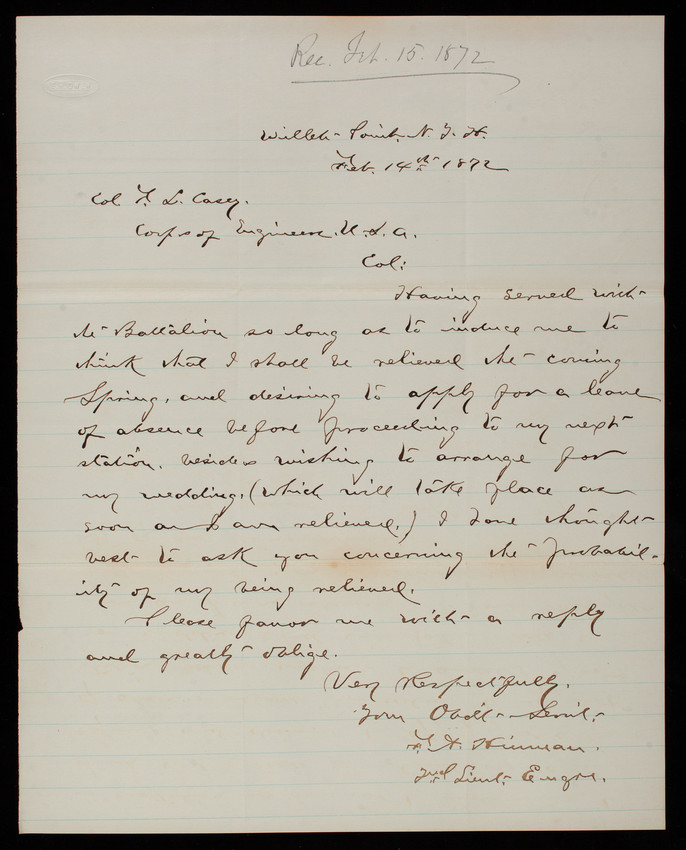 Rec. Feb. 15. 1872
Willets Point, N.Y.H.
Feb. 14th 1872
Col. T. L. Casey.
Corps of Engineers. U.S.A.
Col:
Having served with
the Battalion so long as to induce me to
think that I shall be relieved the coming
Spring, and desiring to apply for a leave
of absence before proceeding to my next
station, besides wishing to arrange for
my wedding, (which will take place as
soon as I am relieved,) I have thought
best to ask you concerning the probabil-
ity of my being relieved.
Please favor me with a reply
and greatly oblige.
Very Respectfully.
Your Obdt. Servt.
F. A. Hinman.
2nd Lieut. Engrs.